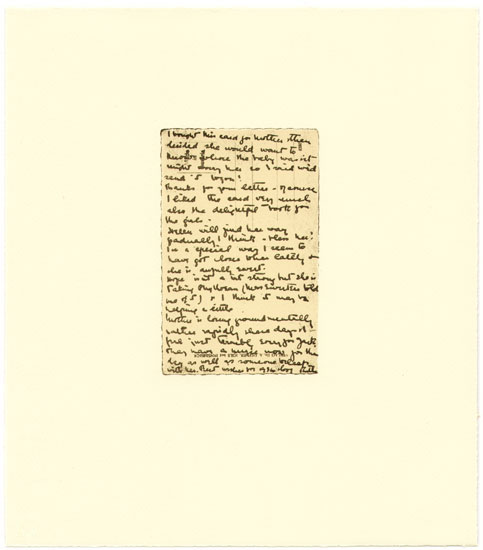 I bought this card for Mother, then
decided she would want to
know where the baby was & it
might worry her so I said we'd
send it to you!
Thanks for your letter - of course
I liked the card very much
also the delightful book for
the girls.
will find her way
gradually I think - bless her!
In a special way I seem to
have got closer to her lately &
she is awfully sweet.
Hope isn't a bit strong but she is
taking (Miss told
me of it) & I think it may be
helping a little.
Mother is losing ground mentally
rather rapidly these days & I
feel just terribly sorry for
They have a nurse now for the
day as well as someone
with her. Best wishes for 1934 love